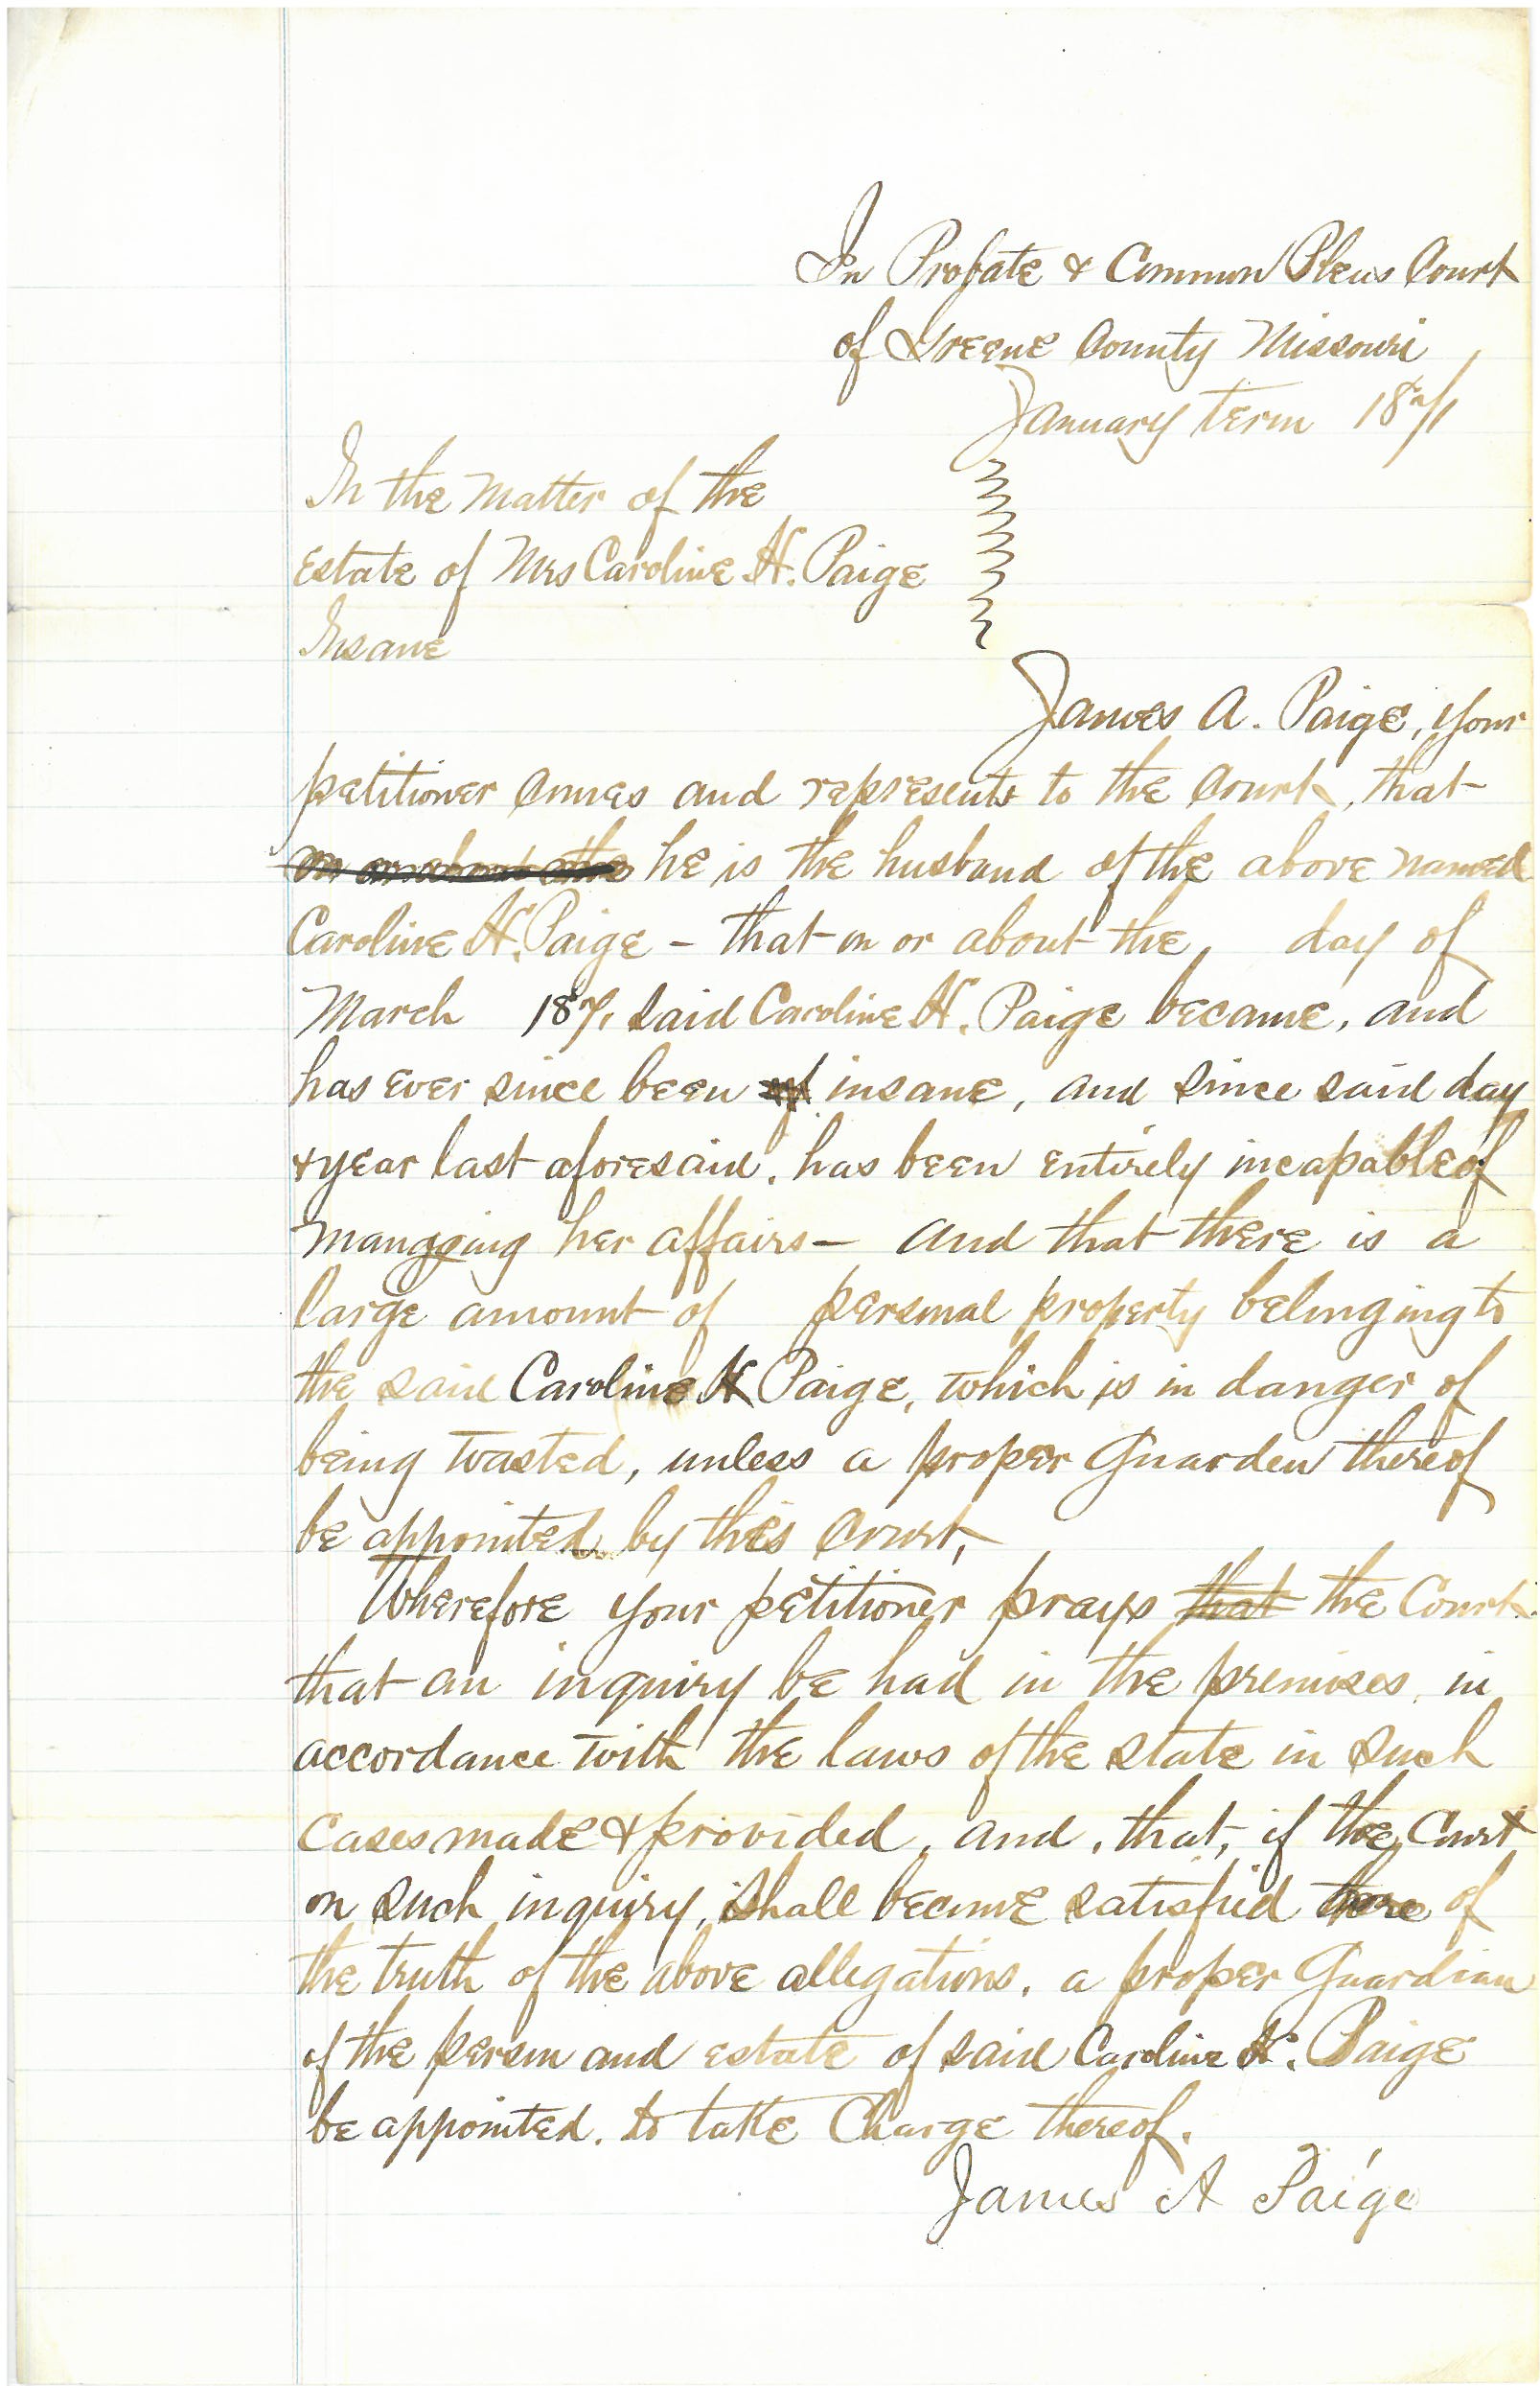 In Probate & Common Pleas Court
of Greene County Missouri
January term 1871
In the Matter of the
Estate of Mrs Caroline H. Paige
Insane
James A. Paige, your
petitioner comes and represents to the Court, that
on or about the he is the husband of the above named
Caroline H. Paige - that on or about the, day of
March 1871 said Caroline H. Paige became, and
has ever since been insane, and since said day
& year last aforesaid, has been entirely incapable of
managing her affairs - and that there is a
large amount of personal property belonging to
the said Caroline H Paige, which is in danger of
being wasted, unless a proper Guarden thereof
be appointed by this Court,
Wherefore your petitioner prays that the Court
that an inquiry be had in the premises, in
accordance with the laws of the state in such
cases made & provided, and, that, if the Court
on such inquiry, shall become satisfied there of
the truth of the above allegations, a proper Guardian
of the person and estate of said Caroline H. Paige
be appointed. to take Charge thereof.
James A Paige